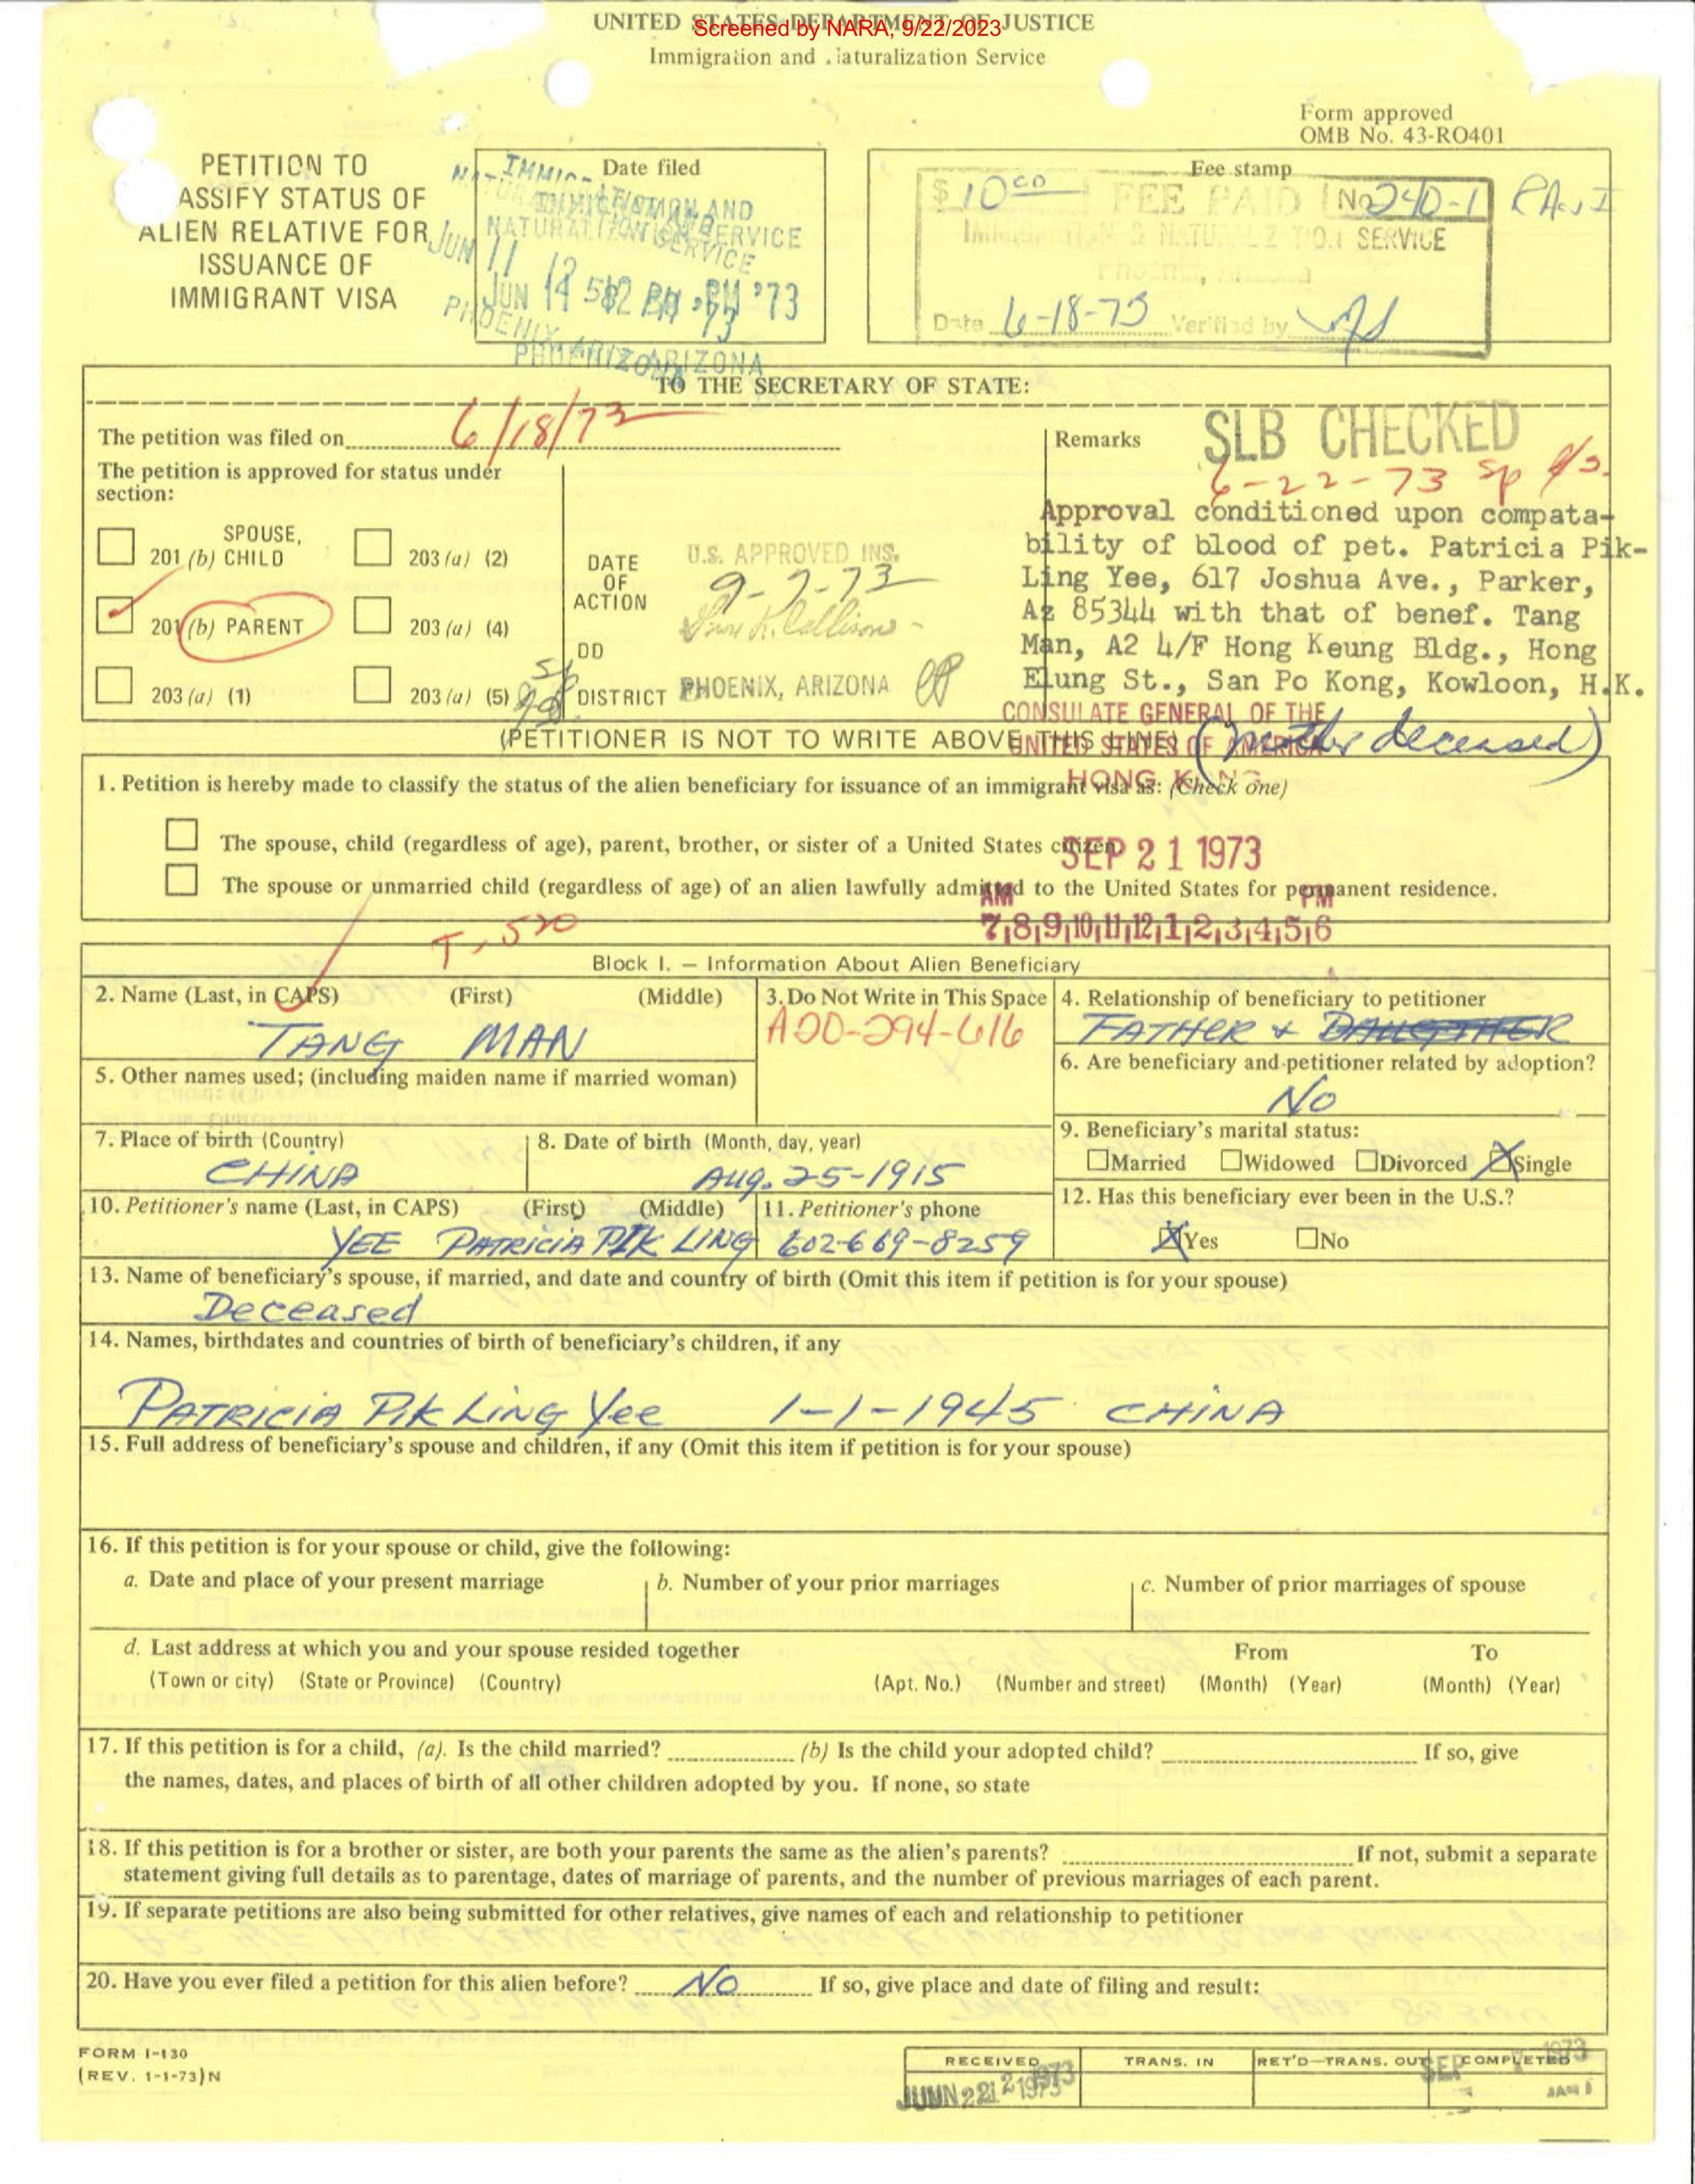 UNITED STATES DEPARTMENT OF JUSTICE
Screened by NARA, 9/22/2023
Immigration and Naturalization Service
Form approved
OMB No. 43-RO401
PETITION TO
ASSIFY STATUS OF
ALIEN RELATIVE FOR
ISSUANCE OF
IMMIGRANT VISA
Date filed
IMMIGRATION AND
NATURALIZATION SERVICE
JUN 11
JUN 14
PM '73
PHOENIX, ARIZONA
Fee stamp
$ 10 00 FEE PAID No 240-1
IMMIGRATION & NATURALIZATION SERVICE
Phoenix, Arizona
Date 6-18-73 Verified by
TO THE SECRETARY OF STATE:
The petition was filed on 6/18/73
The petition is approved for status under
section:
SPOUSE,
201 (b) CHILD
203 (a) (2)
201 (b) PARENT
203 (a) (4)
203 (a) (1)
203 (a) (5)
DATE
OF
ACTION
U.S. APPROVED INS.
9-7-73
DD
DISTRICT PHOENIX, ARIZONA
Remarks
SLB CHECKED
6-22-73 sp
Approval conditioned upon compata-
bility of blood of pet. Patricia Pik-
Ling Yee, 617 Joshua Ave., Parker,
Az 85344 with that of benef. Tang
Man, A2 4/F Hong Keung Bldg., Hong
Elung St., San Po Kong, Kowloon, H.K.
CONSULATE GENERAL OF THE
UNITED STATES OF AMERICA
HONG KONG
(mother deceased)
(PETITIONER IS NOT TO WRITE ABOVE THIS LINE)
1. Petition is hereby made to classify the status of the alien beneficiary for issuance of an immigrant visa as: (Check one)
The spouse, child (regardless of age), parent, brother, or sister of a United States citizen.
SEP 21 1973
The spouse or unmarried child (regardless of age) of an alien lawfully admitted to the United States for permanent residence.
AM PM
7,8,9,10,11,12,1,2,3,4,5,6
T-520
Block I. – Information About Alien Beneficiary
2. Name (Last, in CAPS) (First) (Middle)
TANG MAN
3. Do Not Write in This Space
A20-294-616
4. Relationship of beneficiary to petitioner
FATHER & DAUGHTER
5. Other names used; (including maiden name if married woman)
6. Are beneficiary and petitioner related by adoption?
No
7. Place of birth (Country)
CHINA
8. Date of birth (Month, day, year)
Aug. 25-1915
9. Beneficiary's marital status:
Married Widowed Divorced Single
10. Petitioner's name (Last, in CAPS) (First) (Middle)
YEE PATRICIA PIK LING
11. Petitioner's phone
602-669-8259
12. Has this beneficiary ever been in the U.S.?
Yes No
13. Name of beneficiary's spouse, if married, and date and country of birth (Omit this item if petition is for your spouse)
Deceased
14. Names, birthdates and countries of birth of beneficiary's children, if any
PATRICIA PIK LING Yee 1-1-1945 CHINA
15. Full address of beneficiary's spouse and children, if any (Omit this item if petition is for your spouse)
16. If this petition is for your spouse or child, give the following:
a. Date and place of your present marriage
b. Number of your prior marriages
c. Number of prior marriages of spouse
d. Last address at which you and your spouse resided together From To
(Town or city) (State or Province) (Country) (Apt. No.) (Number and street) (Month) (Year) (Month) (Year)
17. If this petition is for a child, (a). Is the child married? (b) Is the child your adopted child? If so, give
the names, dates, and places of birth of all other children adopted by you. If none, so state
18. If this petition is for a brother or sister, are both your parents the same as the alien's parents? If not, submit a separate
statement giving full details as to parentage, dates of marriage of parents, and the number of previous marriages of each parent.
19. If separate petitions are also being submitted for other relatives, give names of each and relationship to petitioner
20. Have you ever filed a petition for this alien before? NO If so, give place and date of filing and result:
FORM I-130
(REV. 1-1-73)N
RECEIVED TRANS. IN RET'D–TRANS. OUT COMPLETED